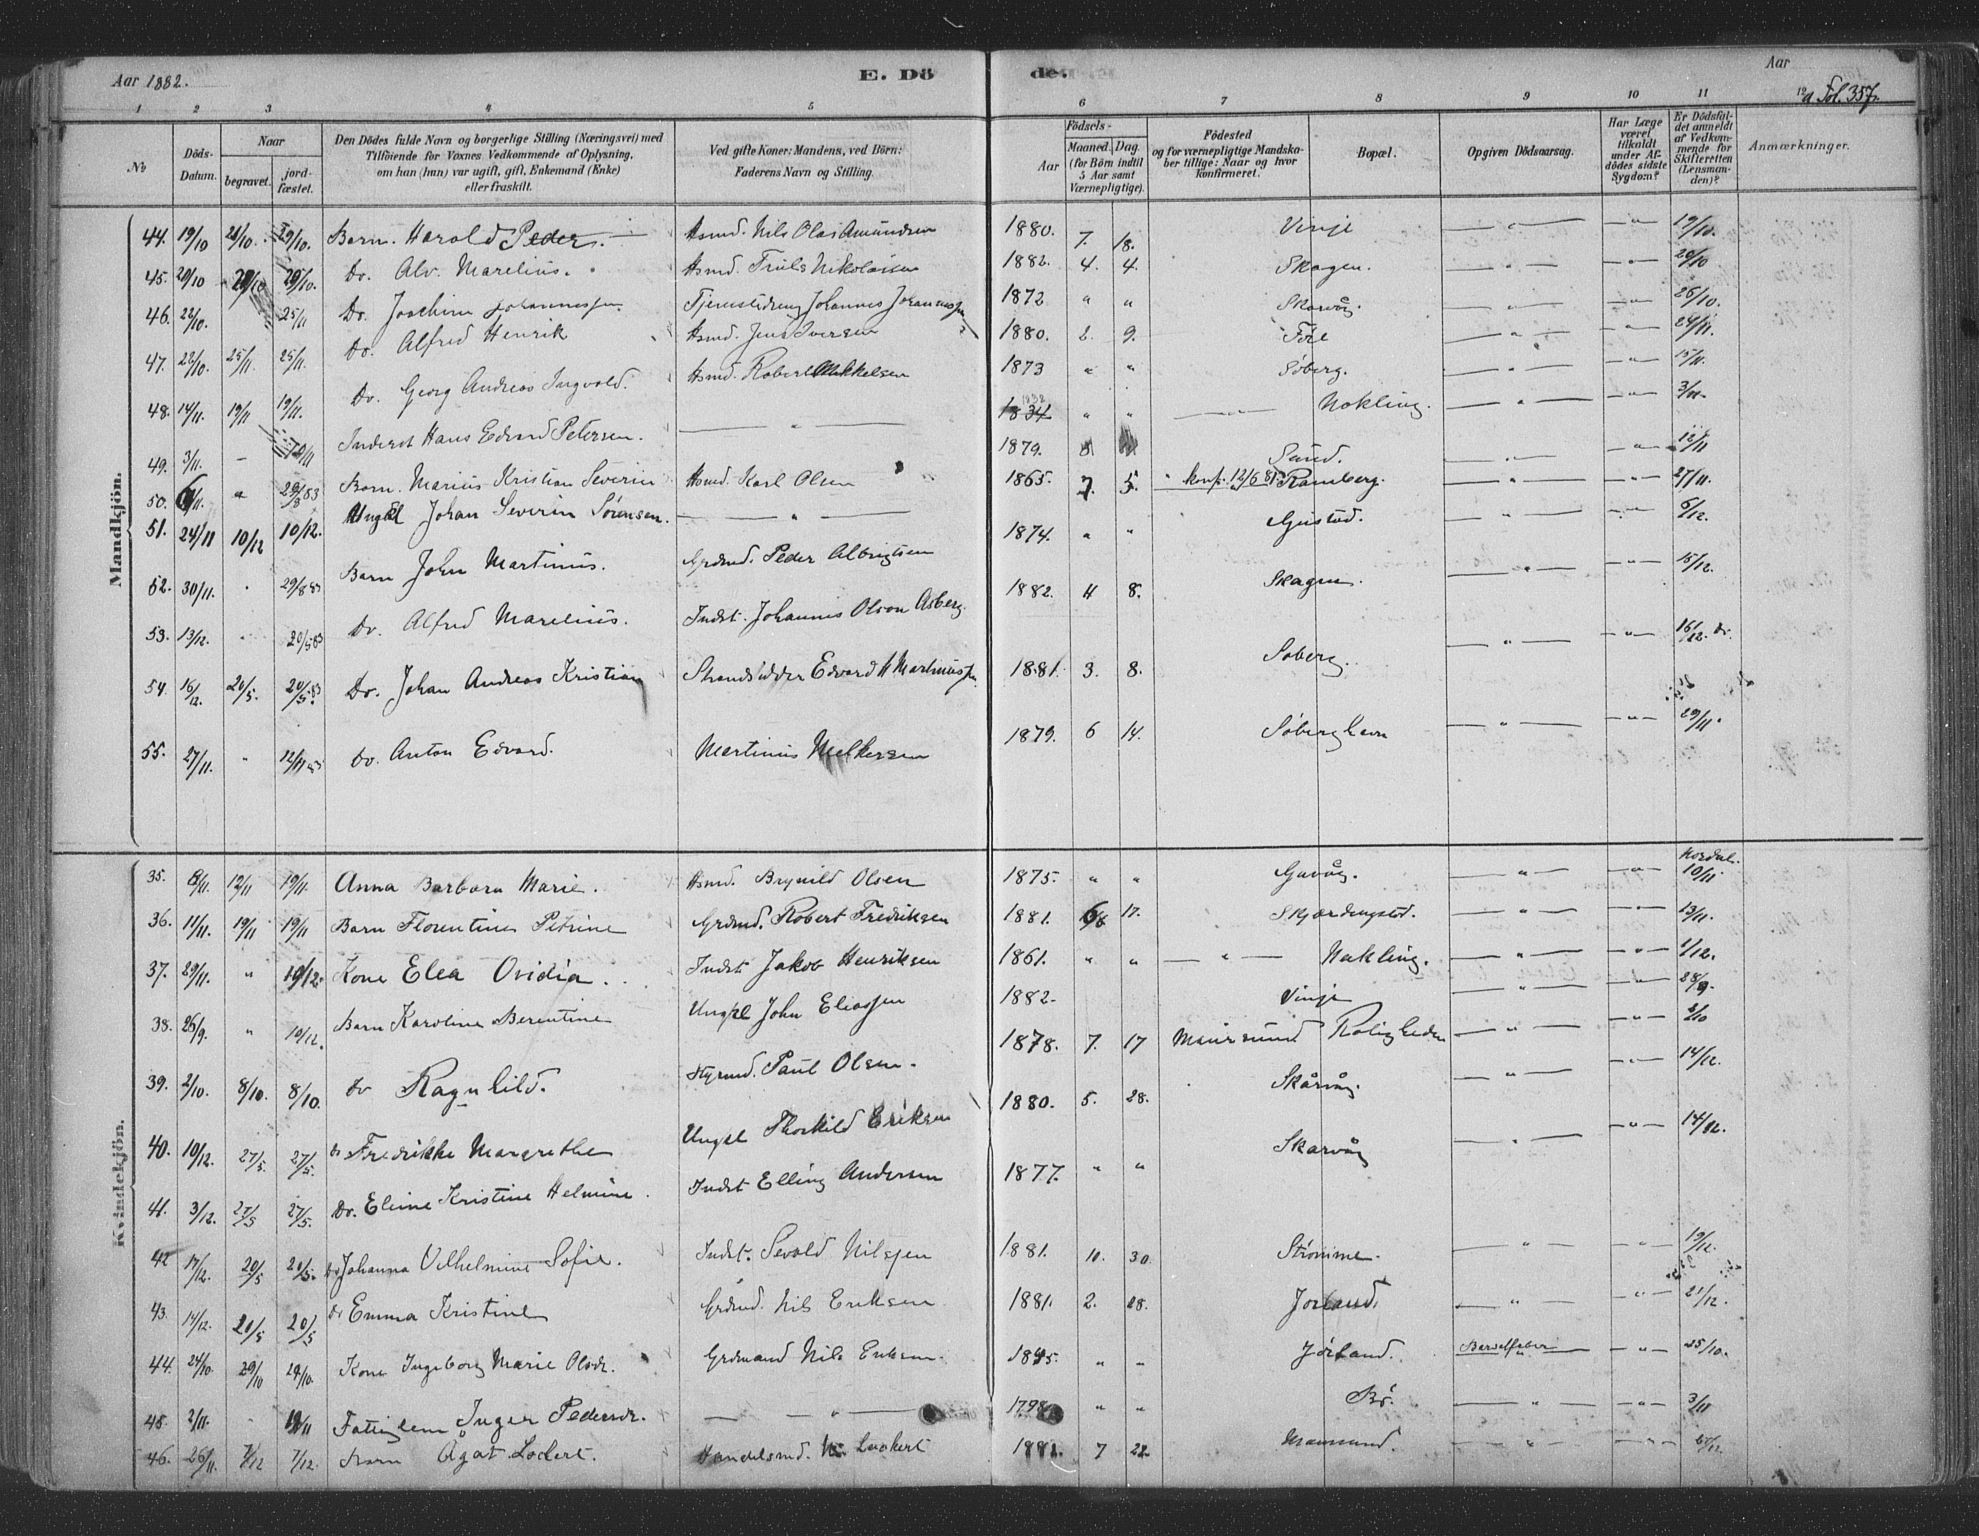 Aar 1882.
E. Dö de.
Aar
Fol. 357.
1 2 3 4 5 6 7 8 9 10 11 12
No
Döds-Datum.
Naar
begravet.
jord-fæstet.
Den Dödes fulde Navn og borgerlige Stilling (Næringsvei) med Tilföiende for Voxnes Vedkommende af Oplysning, om han (hun) var ugift, gift, Enkemand (Enke) eller fraskilt.
Ved gifte Koner: Mandens, ved Börn: Faderens Navn og Stilling.
Födsels-
Aar
Maaned. Dag.
(for Börn indtil 5 Aar samt Værnepligtige).
Födested og for værnepligtige Mandskaber tillige: Naar og hvor konfirmeret.
Bopæl.
Opgiven Dödsaarsag.
Har Læge været tilkaldt under Afdödes sidste Sygdom?
Er Dödsfaldet anmeldt af Vedkommende for Skifteretten (Lensmanden)?
Anmærkninger.
Mandkjön.
44. 19/10 29/10. Barn. Harold Peder. Hsmd. Nils Olai Amundsen 1880. 7. 18. Vinje 19/10.
45. 20/10 29/10 29/10. Do. Alv. Marelius. Hsmd. Truls Nikolaisen 1882. 4. 4. Skagen. 20/10
46. 22/10. 25/11 Do. Joachim Johannessen Tjenestedreng Johannes Johannessen 1872 " " Skarvåg 26/10.
47. 22/10. 25/11. 25/11. Do. Alfred Henrik Hsmd. Jens Iversen 1880. 2. 9. Føre 24/11.
48. 14/11. 19/11 19/11. Do. Georg Andreas Ingvald. Hsmd. Robert Mikkelsen 1873 " " Søberg. 15/11.
49. 3/11. Inderst Hans Edvard Petersen. 1834 1832 " " Nokling. 3/11.
50. Barn. Marius Kristian Severin Hsmd. Karl Olsen 1879. Sund. 12/11
51. 24/11 10/12 10/12. Ungkl Johan Severin Sørensen. 1865. 7. 5. konf. 12/6 81 Ramberg. 27/11.
52. 30/11. 29/8 83 Barn John Martinus. Grdmd. Peder Albrigtsen 1874. " " Gustad. 6/12.
53. 13/12. 20/5 83 Do. Alfred Marelius. Indst. Johannes Olson Asberg. 1882. 4 8. Skagen. 15/12.
54. 16/12. 20/5. 20/5. 83 Do. Johan Andreas Kristian Strandsidder Edvard H Martinussen 1881. 3. 8. Søberg. 16/12. do.
55. 27/11. Do. Anton Edvard. Martinus Melkersen 1879. 6 14. Søberghavn 29/11.
Kvindekjön.
35. 8/11. 19/11 Anna Barbara Marie. Hsmd. Brynild Olsen 1875. " " Gavåg. 10/11
36. 11/11. 19/11 19/11 Barn Florentine Petrine Grdmd. Robert Fredriksen 1881. 17. Skjærdingstad. 13/11.
37. 29/11. " 10/12. Kone Elea Ovidia. Indst. Jakob Henriksen 1861. " " Nokling. 1/12.
38. 26/9. " 10/12. Barn Karoline Berentine Ungkl John Eliassen 1882. Vinje 28/9.
39. 2/10. 8/10. 8/10. Do Ragnhild. Hyrmd. Paul Olsen. 1878. 7. 17 Maursund Roligheden 2/10
40. 10/12. 27/5. 27/5. Do Fredrikke Margrethe Ungkl Thorkild Eriksen 1880. 5. 28. Skårvåg 14/12.
41. 3/12. 27/5 27/5. Do. Eline Kristine Helmine. Indst Elling Andersen 1877. " " Skarvåg 14/12.
42 17/12. 20/5 20/5. Do Johanna Vilhelmine Sofie. Indst. Sevald Nilssen 1881. 10. 30. Strømme. 19/12.
43. 14/12. 20/5 20/5 Do Emma Kristine Grdmd. Nils Eriksen 1881. 2. 28. Jorland. 21/12.
44. 24/10. 29/10 29/10. Kone Ingeborg Marie Olsdr. Grdmand Nils Eriksen. 1845. " " Jørland. Barselfeber 25/10.
45. 2/11. 19/11 Fattiglem Inger Pedersdr. 1798. " " Bø. 3/11
46. 26/11. 7/12 7/12. Barn Agat Lockert. Handelsmd. Lockert 7 22. Maursund.